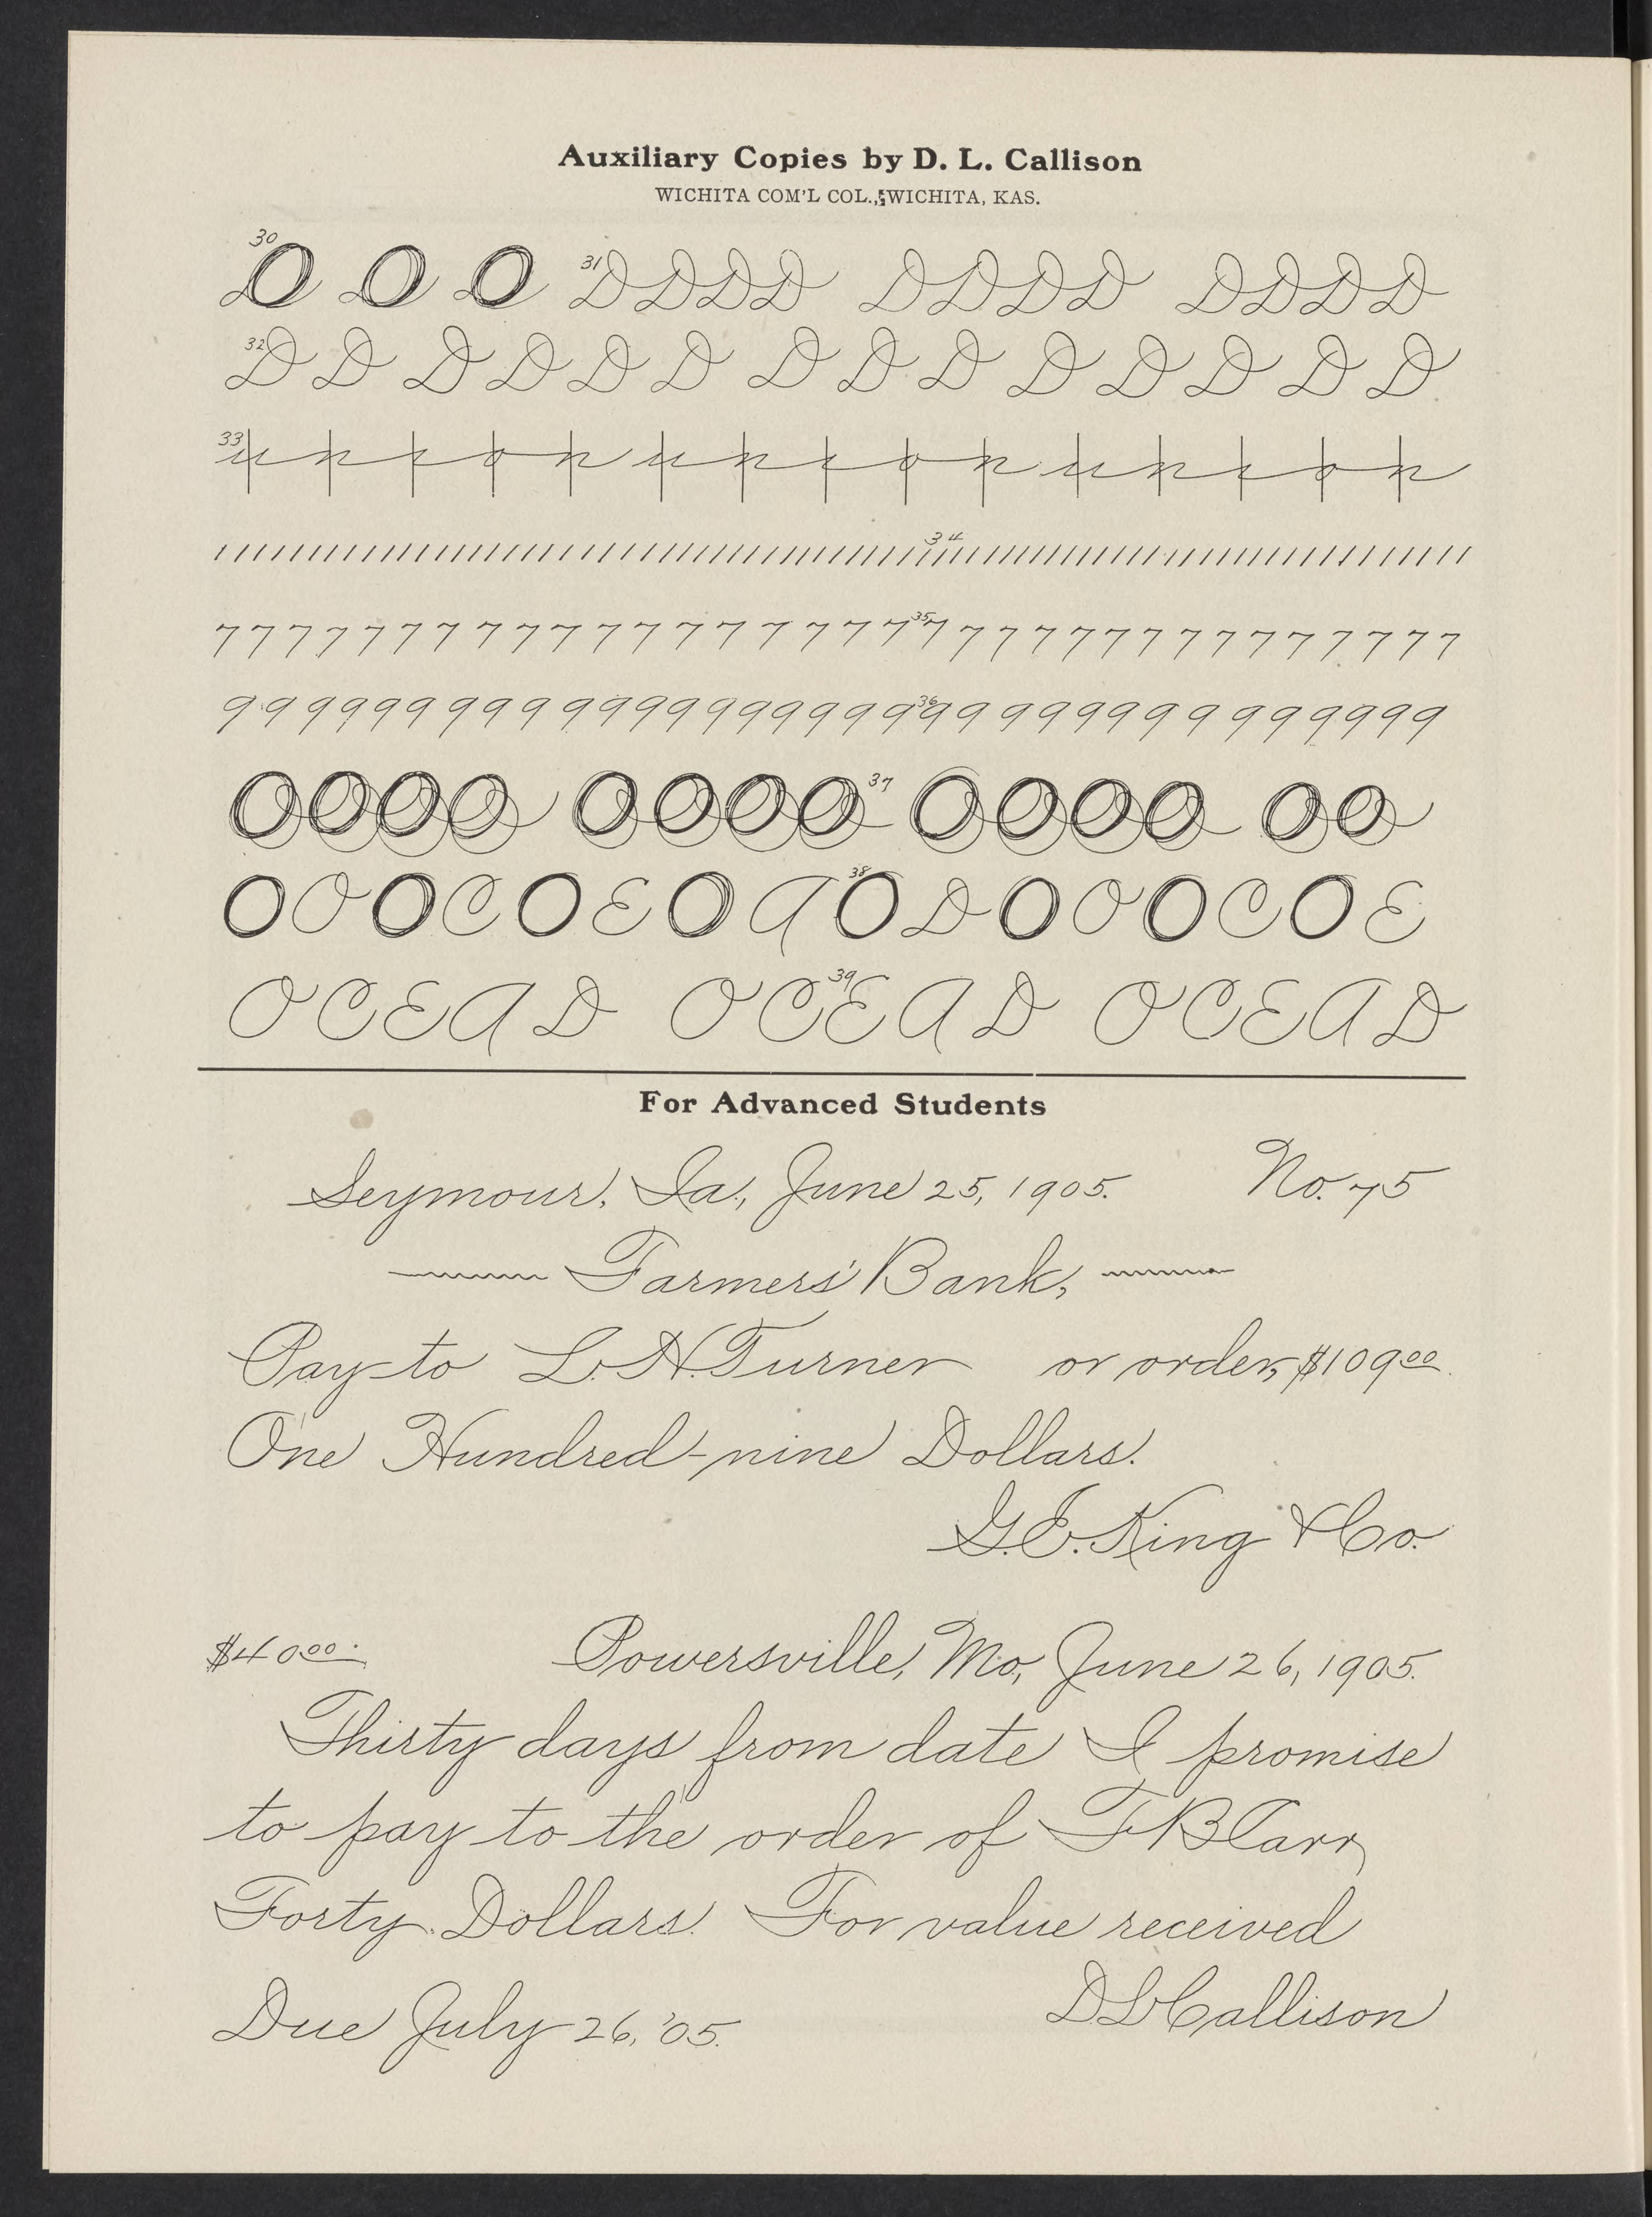 Auxiliary Copies by D. L. Callison
WICHITA COM'L COL., WICHITA, KAS.
30 O O O 31 D D D D D D D D D D D D
32 D D D D D D D D D D D D D D
33
34
35 7 7 7 7 7 7 7 7 7 7 7 7 7 7 7 7 7 7 7 7 7 7 7 7 7 7 7 7 7 7 7 7 7
36 9 9 9 9 9 9 9 9 9 9 9 9 9 9 9 9 9 9 9 9 9 9 9 9 9 9 9 9 9 9 9 9 9
O O O O O O O O 37 O O O O O O
O O O C O E O A 38 O D O O O C O E
O C E A D O C 39 E A D O C E A D
For Advanced Students
Seymour, Ia., June 25, 1905. No. 75
Farmers' Bank,
Pay to L. H. Turner or order, $109 00
One Hundred-nine Dollars.
G. E. King & Co.
$40 00. Powersville, Mo., June 26, 1905.
Thirty days from date I promise
to pay to the order of F B Carr
Forty Dollars. For value received
Due July 26, '05. D L Callison